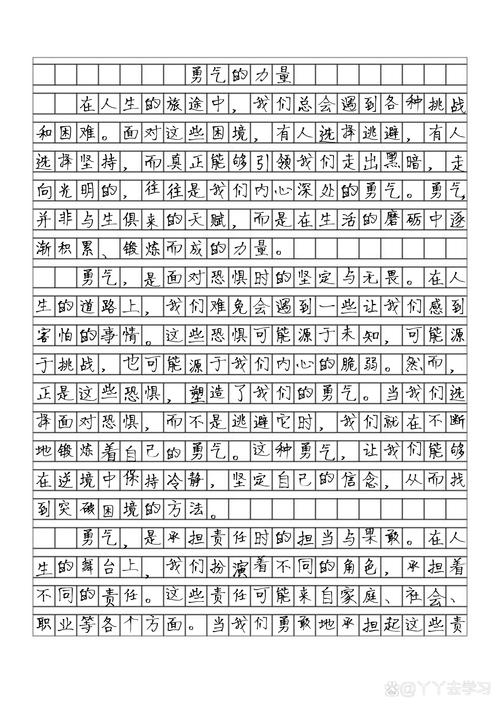 勇气的力量
在人生的旅途中，我们总会遇到各种挑战
和困难。面对这些困境，有人选择逃避，有人
选择坚持，而真正能够引领我们走出黑暗，走
向光明的，往往是我们内心深处的勇气。勇气
并非与生俱来的天赋，而是在生活的磨砺中逐
渐积累、锻炼而成的力量。
勇气，是面对恐惧时的坚定与无畏。在人
生的道路上，我们难免会遇到一些让我们感到
害怕的事情。这些恐惧可能源于未知，可能源
于挑战，也可能源于我们内心的脆弱。然而，
正是这些恐惧，塑造了我们的勇气。当我们选
择面对恐惧，而不是逃避它时，我们就在不断
地锻炼着自己的勇气。这种勇气，让我们能够
在逆境中保持冷静，坚定自己的信念，从而找
到突破困境的方法。
勇气，是承担责任时的担当与果敢。在人
生的舞台上，我们扮演着不同的角色，承担着
不同的责任。这些责任可能来自家庭、社会、
职业等各个方面。当我们勇敢地承担起这些责
丫丫去学习